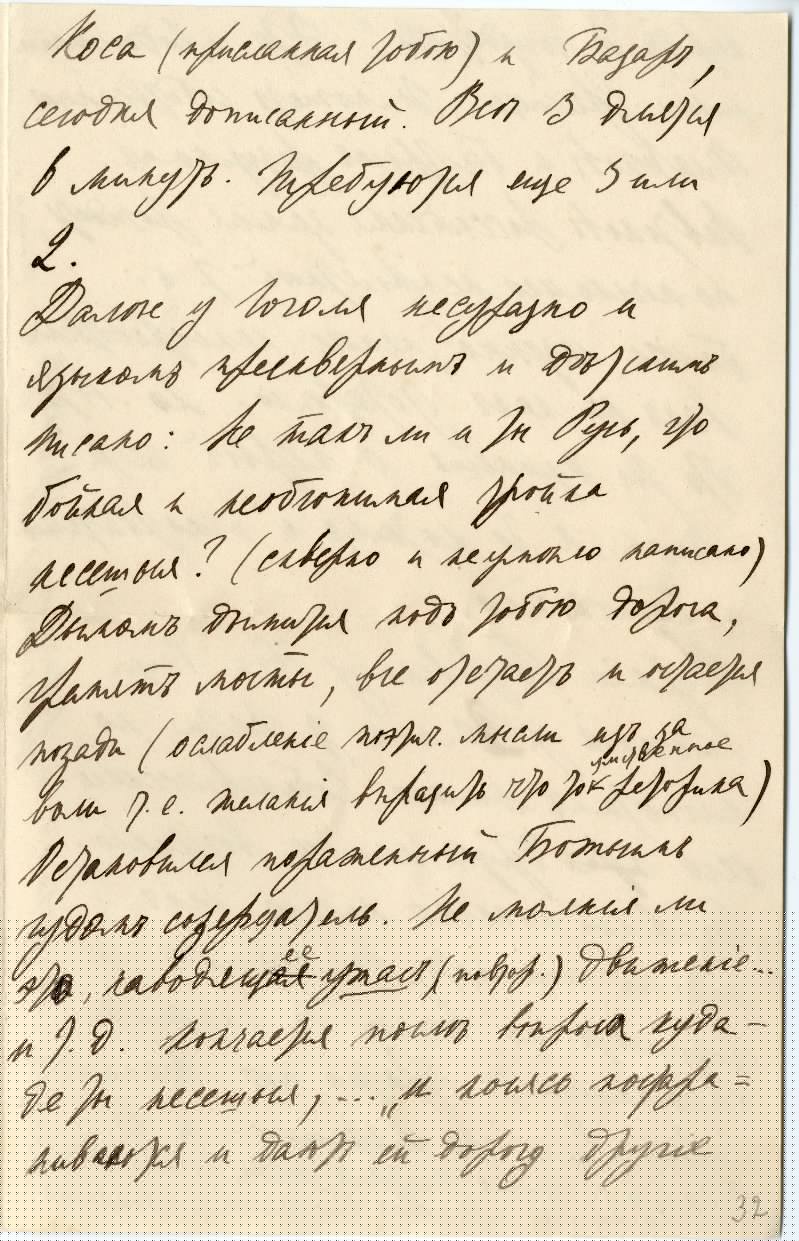 Коса (присланная тобою) и Базаръ,
сегодня дописанный. Все 3 длятся
6 минутъ. Требуются еще 3 или
2.
Далѣе у Гоголя несуразно и
языкомъ пресквернымъ и дѣтскимъ
писано: Не такъ ли и ты Русь, что
бойкая и необгонимая тройка
несешься? (скверно и неумно написано)
Дымомъ дымится подъ тобою дорога,
гремятъ мосты, все отстаетъ и остается
позади (ослабленіе поэтич. мысли изъ за
воли т. е. желанія выразить что то
умственное
риторика)
Остановился пораженный Божьимъ
чудомъ созерцатель. Не молнія ли
это, наводящее ужасъ (повтор.) движеніе...
и т. д. Кончается послѣ вопроса куда-
де ты несешься, ... „и косясь постора=
ниваются и даютъ ей дорогу другіе
32